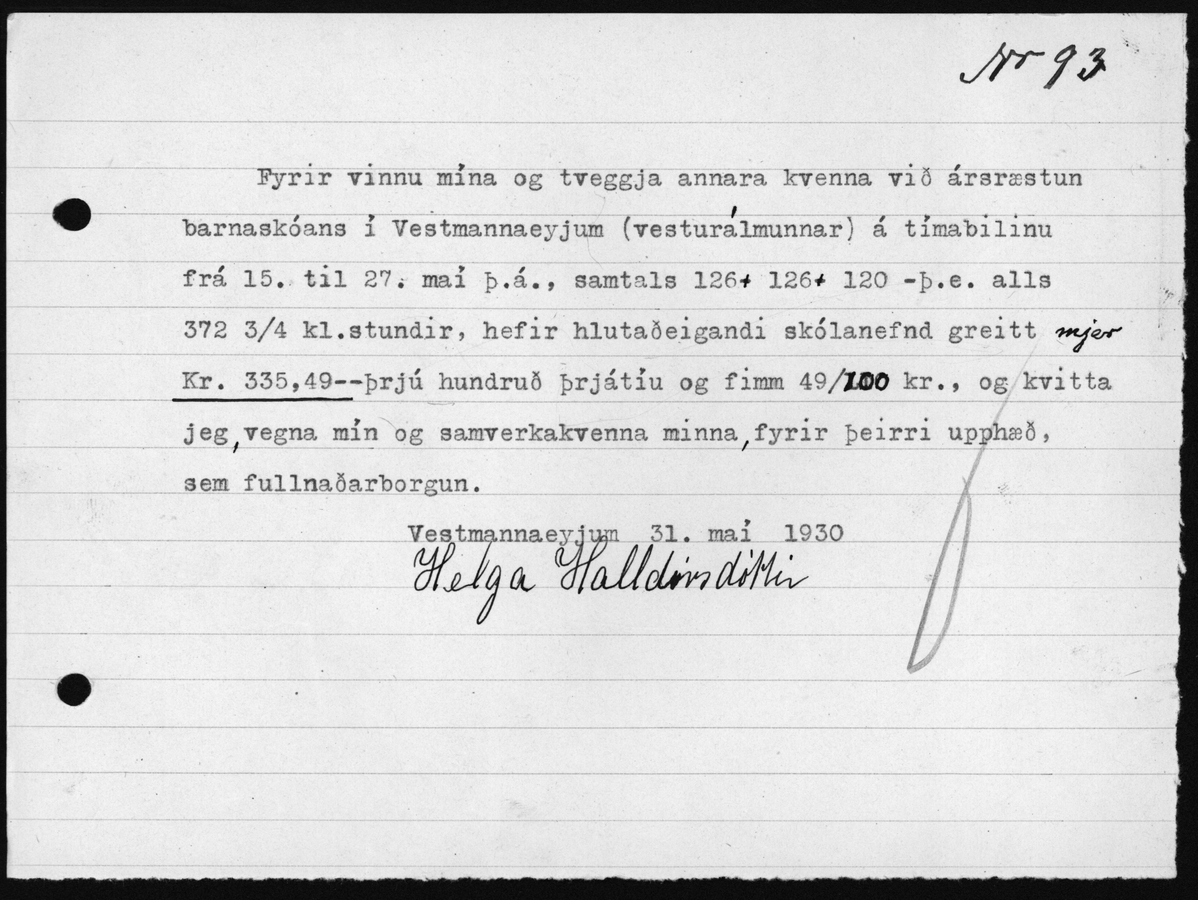 Nr 93
Fyrir vinnu mína og tveggja annara kvenna við ársræstun
barnaskóans í Vestmannaeyjum (vesturálmunnar) á tímabilinu
frá 15. til 27. maí þ.á., samtals 126+ 126+ 120 -þ.e. alls
372 3/4 kl.stundir, hefir hlutaðeigandi skólanefnd greitt mjer
Kr. 335,49--þrjú hundruð þrjátíu og fimm 49/100 kr., og kvitta
jeg, vegna mín og samverkakvenna minna, fyrir þeirri upphæð,
sem fullnaðarborgun.
Vestmannaeyjum 31. maí 1930
Helga Halldórsdóttir